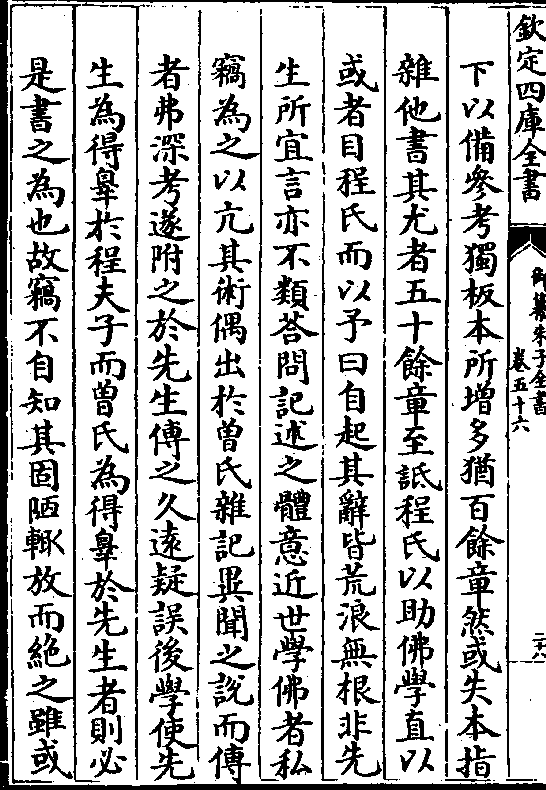 欽定四庫全書
御纂朱子全書
卷五十六
二十八
下以備參考獨板本所增多猶百餘章然或失本指
雜他書其尤者五十餘章至詆程氏以助佛學直以
或者目程氏而以予曰自起其辭皆荒浪無根非先
生所宜言亦不類荅問記述之體意近世學佛者私
竊為之以亢其術偶出於曽氏雜記異聞之說而傳
者弗深考遂附之於先生傳之久遠疑誤後學使先
生為得辠於程夫子而曽氏為得辠於先生者則必
是書之為也故竊不自知其固陋輙放而絶之雖或